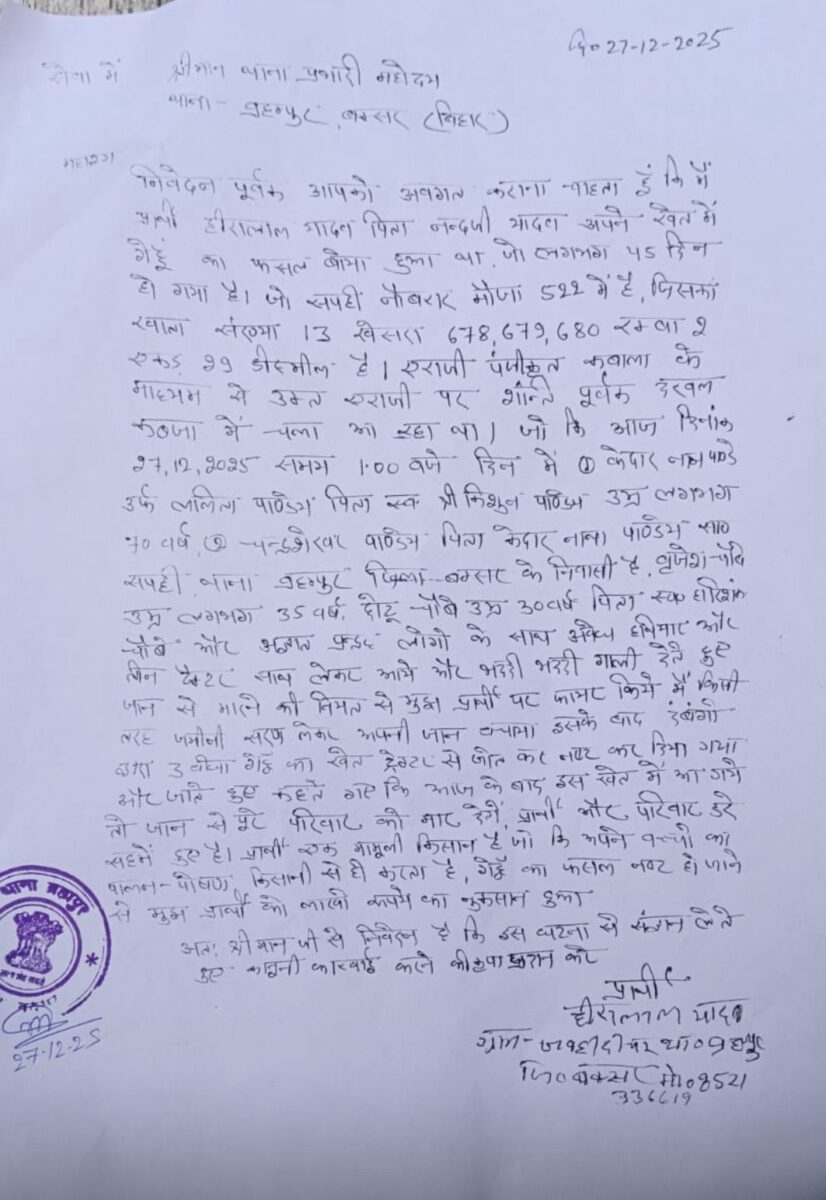 दि० 27-12-2025
सेवा में श्रीमान थाना प्रभारी महोदय
थाना - ब्रह्मपुर, बक्सर (बिहार)
महाशय
निवेदन पूर्वक आपको अवगत कराना चाहता हूँ कि मैं
प्रार्थी हीरालाल यादव पिता नन्दजी यादव अपने खेत में
गेहूँ का फसल बोया हुआ था, जो लगभग 45 दिन
हो गया है। जो सपही नौबरार मौजा 522 में है, जिसका
खाता संख्या 13 खेसरा 678,679,680 रकवा 2
एकड़ 29 डीसमील है। एराजी पंजीकृत कबाला के
माध्यम से उक्त एराजी पर शान्ति पूर्वक दखल
कब्जा में चला आ रहा था। जो कि आज दिनांक
27,12,2025 समय 1:00 बजे दिन में ① केदार नाथ पाण्डे
उर्फ ललिता पाण्डेय पिता स्व श्री किशुन पाण्डेय उम्र लगभग
70 वर्ष, ② चन्द्रशेखर पाण्डेय पिता केदार नाथ पाण्डेय सा०
सपही थाना ब्रह्मपुर जिला-बक्सर के निवासी है, बृजेश चौबे
उम्र लगभग 35 वर्ष, छोटू चौबे उम्र 30 वर्ष पिता स्व०
चौबे और अज्ञात लोगो के साथ अवैध हथियार और
तीन ट्रैक्टर साथ लेकर आये और भद्दी भद्दी गाली देते हुए
जान से मारने की नियत से मुझ प्रार्थी पर फायर किये मैं किसी
तरह जमीनी सरण लेकर अपनी जान बचाया इसके बाद दबंगो
द्वारा 3 बीघा गेहूँ का खेत ट्रैक्टर से जोत कर नष्ट कर दिया गया
और जाते हुए कहते गए कि आज के बाद इस खेत में आ गये
तो जान से पूरे परिवार को मार देगें, प्रार्थी और परिवार डरे
सहमें हुए है। प्रार्थी एक मामूली किसान है, जो कि अपने बच्चो का
पालन-पोषण किसानी से ही करता है, गेहूँ का फसल नष्ट हो जाने
से मुझ प्रार्थी को लाखो रूपये का नुकसान हुआ
अतः श्रीमान जी से निवेदन है कि इस घटना से संज्ञान लेते
हुए कानूनी कारवाई करने की कृपा प्रदान करे
प्रार्थी
हीरालाल यादव
ग्राम- था० ब्रह्मपुर
जि० बक्सर मो० 8521
336619
थाना ब्रह्मपुर
27-12-25